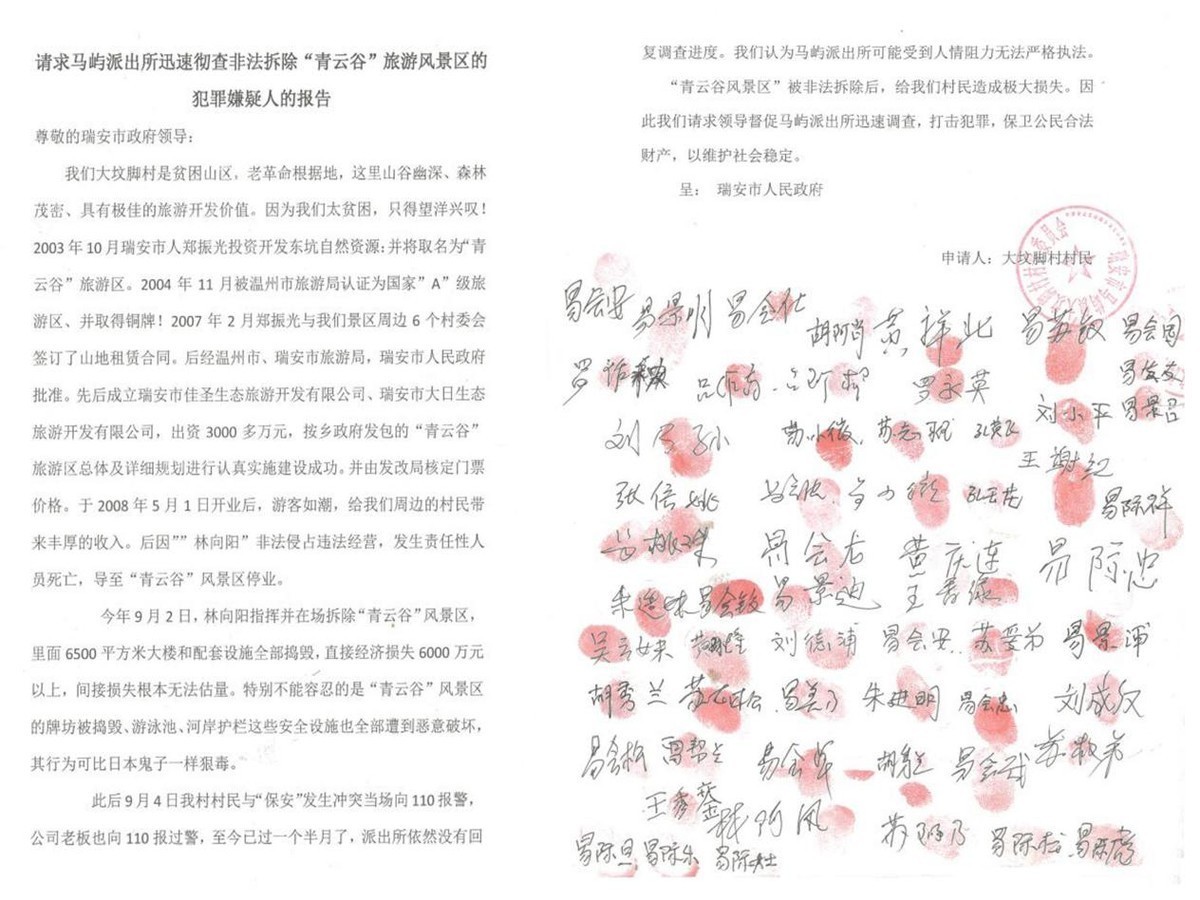 请求马屿派出所迅速彻查非法拆除“青云谷”旅游风景区的
犯罪嫌疑人的报告
尊敬的瑞安市政府领导:
我们大坟脚村是贫困山区。老革命根据地,这里山谷幽深、森林
茂密、具有极佳的旅游开发价值。因为我们太贫困,只得望洋兴叹!
2003年10月瑞安市人郑振光投资开发东坑自然资源:并将取名为“青
云谷”旅游区。2004年11月被温州市旅游局认证为国家”A”级旅
游区、并取得铜牌!2007年2月郑振光与我们景区周边6个村委会
签订了山地租赁合同。后经温州市、瑞安市旅游局,瑞安市人民政府
批准。先后成立瑞安市佳圣生态旅游开发有限公司、瑞安市大日生态
旅游开发有限公司,出资3000多万元,按乡政府发包的“青云谷”
旅游区总体及详细规划进行认真实施建设成功。并由发改局核定门票
价格。于2008年5月1日开业后,游客如潮,给我们周边的村民带
来丰厚的收入。后因””林向阳”非法侵占违法经营,发生责任性人
员死亡,导至“青云谷”风景区停业。
今年9月2日,林向阳指挥并在场拆除“青云谷”风景区,
里面6500平方米大楼和配套设施全部捣毁,直接经济损失6000万元
以上,间接损失根本无法估量。特别不能容忍的是“青云谷”风景区
的牌坊被捣毁、游泳池、河岸护栏这些安全设施也全部遭到恶意破坏,
其行为可比日本鬼子一样狠毒。
此后9月4日我村村民与“保安”发生冲突当场向110报警,
公司老板也向110报过警,至今已过一个半月了,派出所依然没有回
复调查进度。我们认为马屿派出所可能受到人情阻力无法严格执法。
“青云谷风景区”被非法拆除后,给我们村民造成极大损失。因
此我们请求领导督促马屿派出所迅速调查,打击犯罪,保卫公民合法
财产,以维护社会稳定。
呈: 瑞安市人民政府
申请人:大坟脚村村民
易会安 易景明 易会仕
胡阿肖 黄祥北 易苏钗 易会国
罗永英
刘小平 易景吕
王谢红
张信姚 易际祥
易会右 黄庆连 易际忠
易会敏 易景迪 王香绿
刘德浦 易会安 苏爱弟 易景浦
胡秀兰 易美乃 朱进明 易会忠 刘成钗
易会松 易会华 易会武
林阿凤
易际旦 易际乐 易际灶 易际龙 易际虎